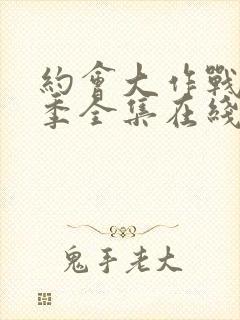 約會大作戰
季全集在綫
鬼手老大